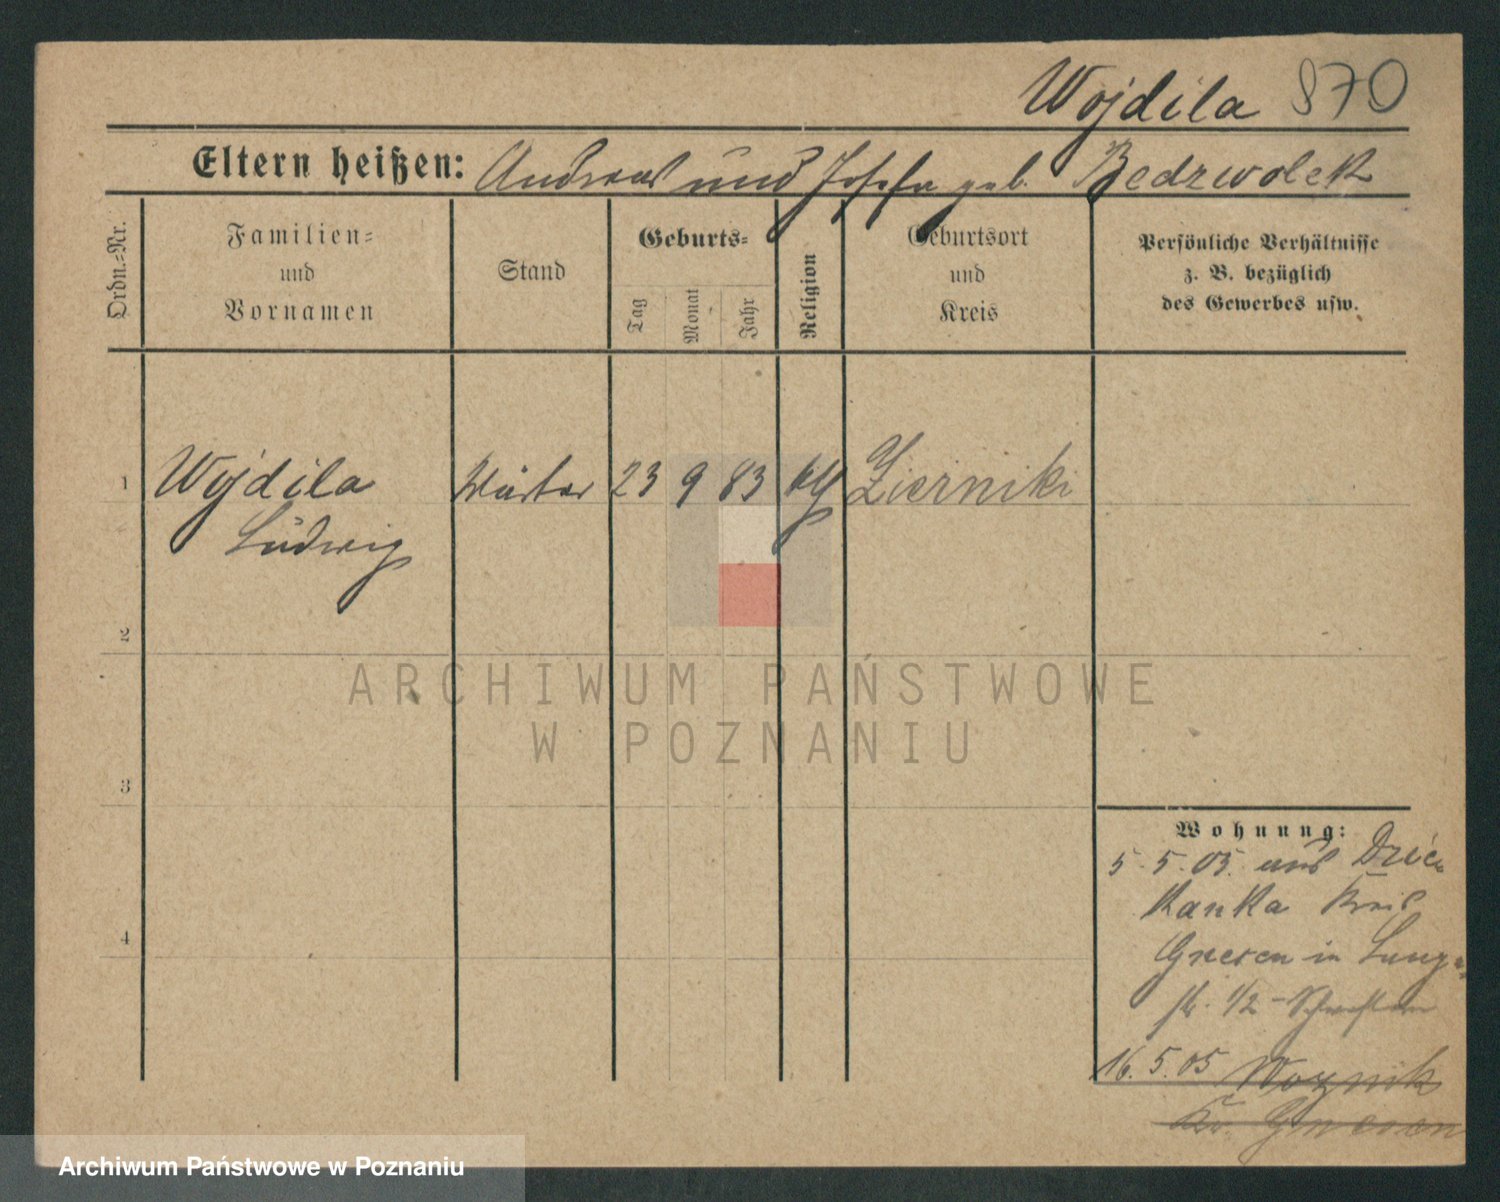 Wojdila 870
Eltern heißen: Andreas und Josefa geb. Bedzwolek
Ordn.-Nr.
Familien-
und
Vornamen
Stand
Geburts-
Tag
Monat
Jahr
Religion
Geburtsort
und
Kreis
Persönliche Verhältnisse
z. B. bezüglich
des Gewerbes usw.
1 Wojdila Wärter 23 9 83 Zierniki
Ludwig
2
3
4
Wohnung:
5.5.05. aus Dzie
kanka Kreis
Gnesen in
str. 1/2
16.5.05 Woznik
Kr. Gnesen
ARCHIWUM PAŃSTWOWE
W POZNANIU
Archiwum Państwowe w Poznaniu